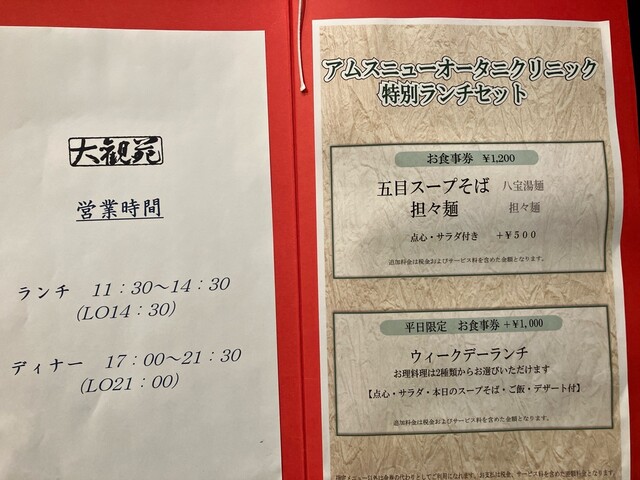 大観苑
営業時間
ランチ 11:30～14:30
(LO14:30)
ディナー 17:00～21:30
(LO21:00)
アムスニューオータニクリニック
特別ランチセット
お食事券 ￥1,200
五目スープそば 八宝湯麺
担々麺 担々麺
点心・サラダ付き +￥500
追加料金は税金およびサービス料を含めた金額となります。
平日限定 お食事券+￥1,000
ウィークデーランチ
お料理は2種類からお選びいただけます
【点心・サラダ・本日のスープそば・ご飯・デザート付】
追加料金は税金およびサービス料を含めた金額となります。